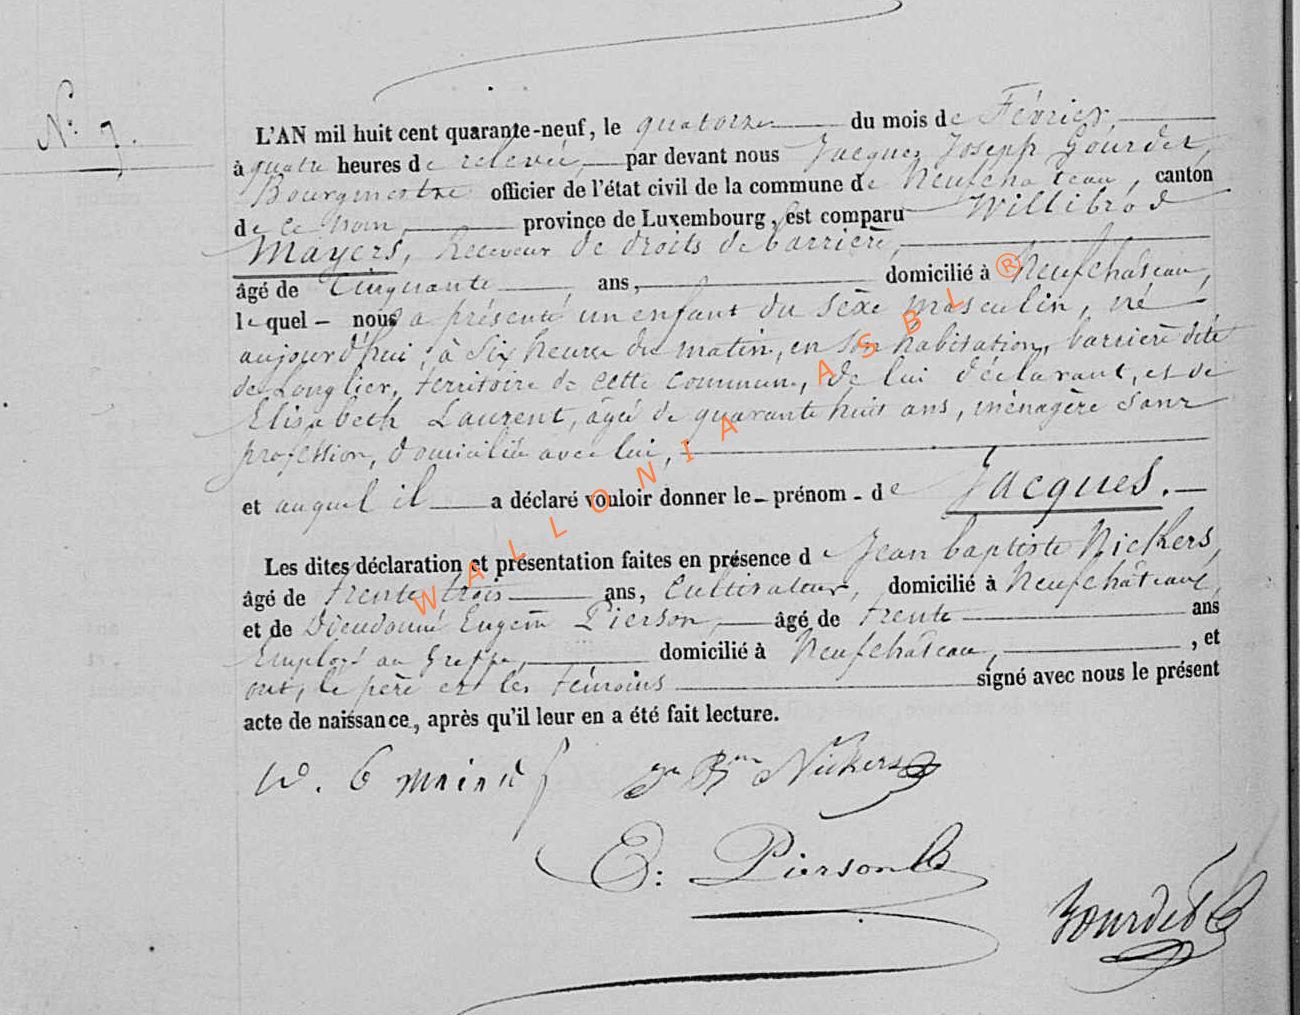 N° 7.
L'AN mil huit cent quarante-neuf, le quatorze du mois de Février,
à quatre heures de relevée, par devant nous Jacques Joseph Gourdet,
Bourgmestre officier de l'état civil de la commune de Neufchateau, canton
de ce nom, province de Luxembourg, est comparu Willibrod
Mayers, Receveur de droits de barrière,
âgé de Cinquante ans, domicilié à Neufchâteau,
le quel - nous a présenté un enfant du sèxe masculin, né
aujourd'hui, à six heures du matin, en son habitation, barrière dite
de Longlier, territoire de cette commune, de lui déclarant, et de
Elisabeth Laurent, âgée de quarante huit ans, ménagère sans
profession, domiciliée avec lui,
et auquel il a déclaré vouloir donner le - prénom - de Jacques.
Les dites déclaration et présentation faites en présence de Jean baptiste Nickers,
âgé de trente trois ans, Cultivateur, domicilié à Neufchâteau,
et de Dieudonné Eugène Pierson, âgé de trente ans
Employé au Greffe, domicilié à Neufchâteau, , et
ont, le père et les témoins signé avec nous le présent
acte de naissance, après qu'il leur en a été fait lecture.
W.
Nickers
E: Pierson
Gourdet
WALLONIA ASBL ®